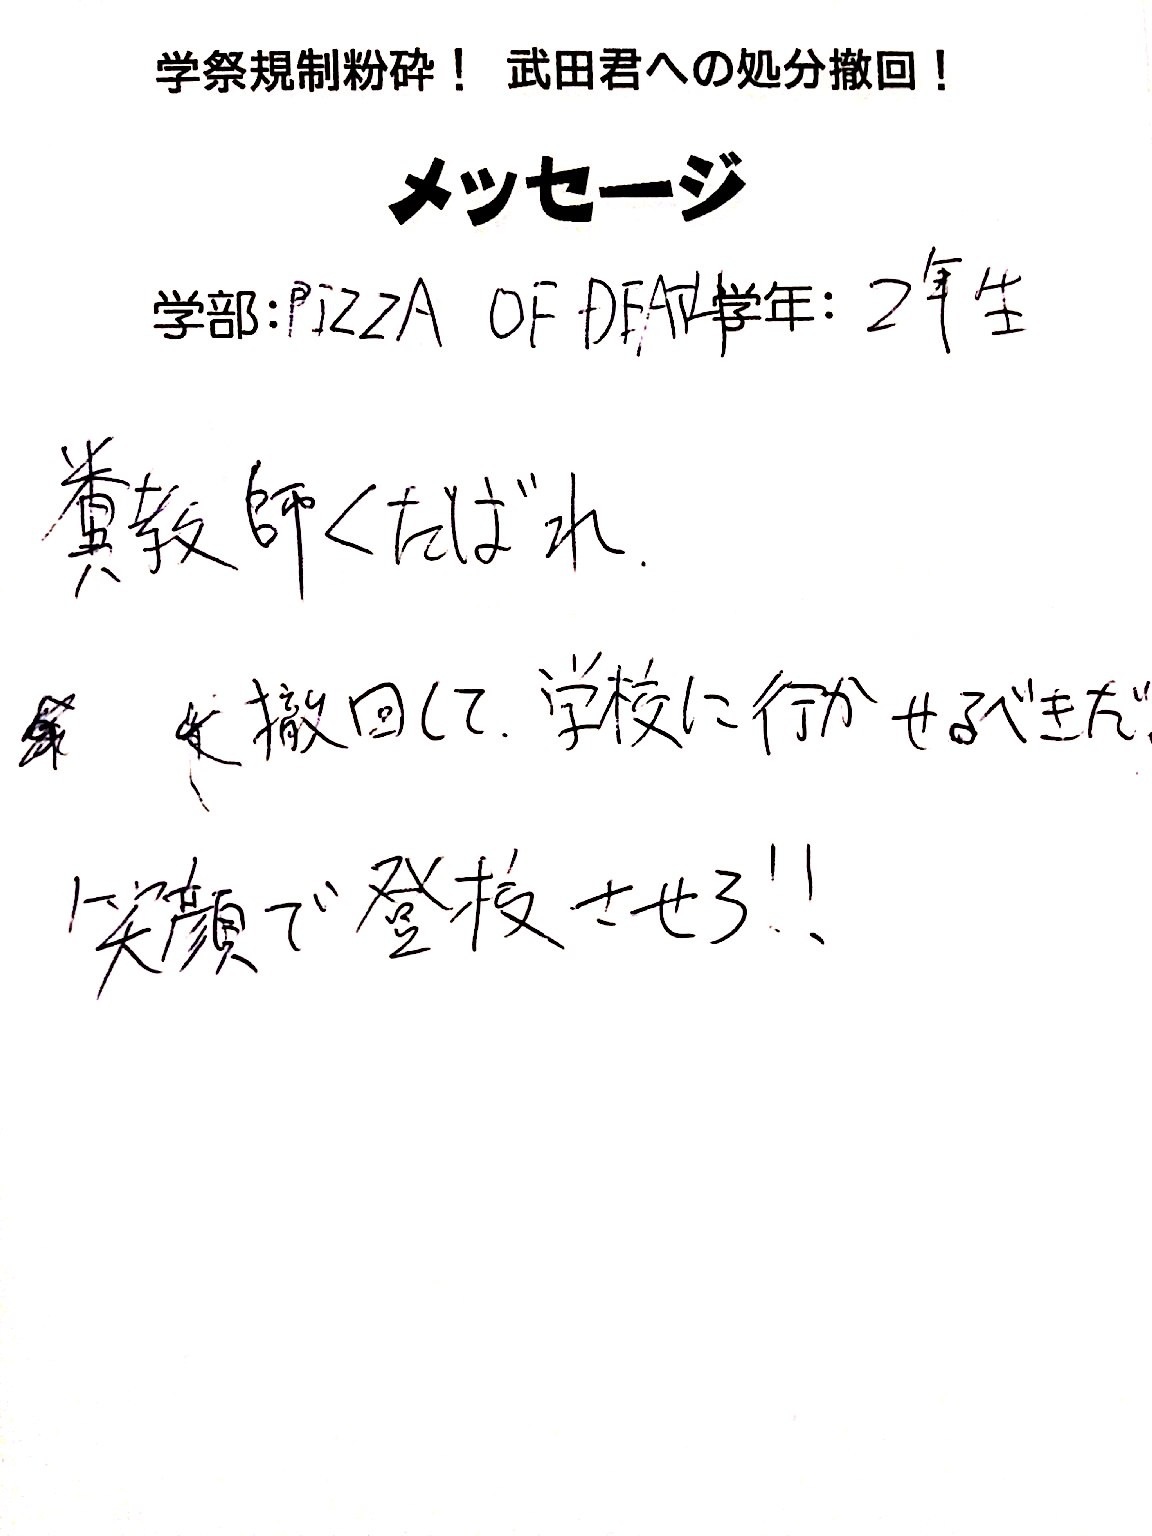 学祭規制粉砕！ 武田君への処分撤回！
メッセージ
学部:PIZZA OF DEATH 学年: 2年生
糞教師くたばれ.
撤回して.学校に行かせるべきだ.
笑顔で登校させろ!!